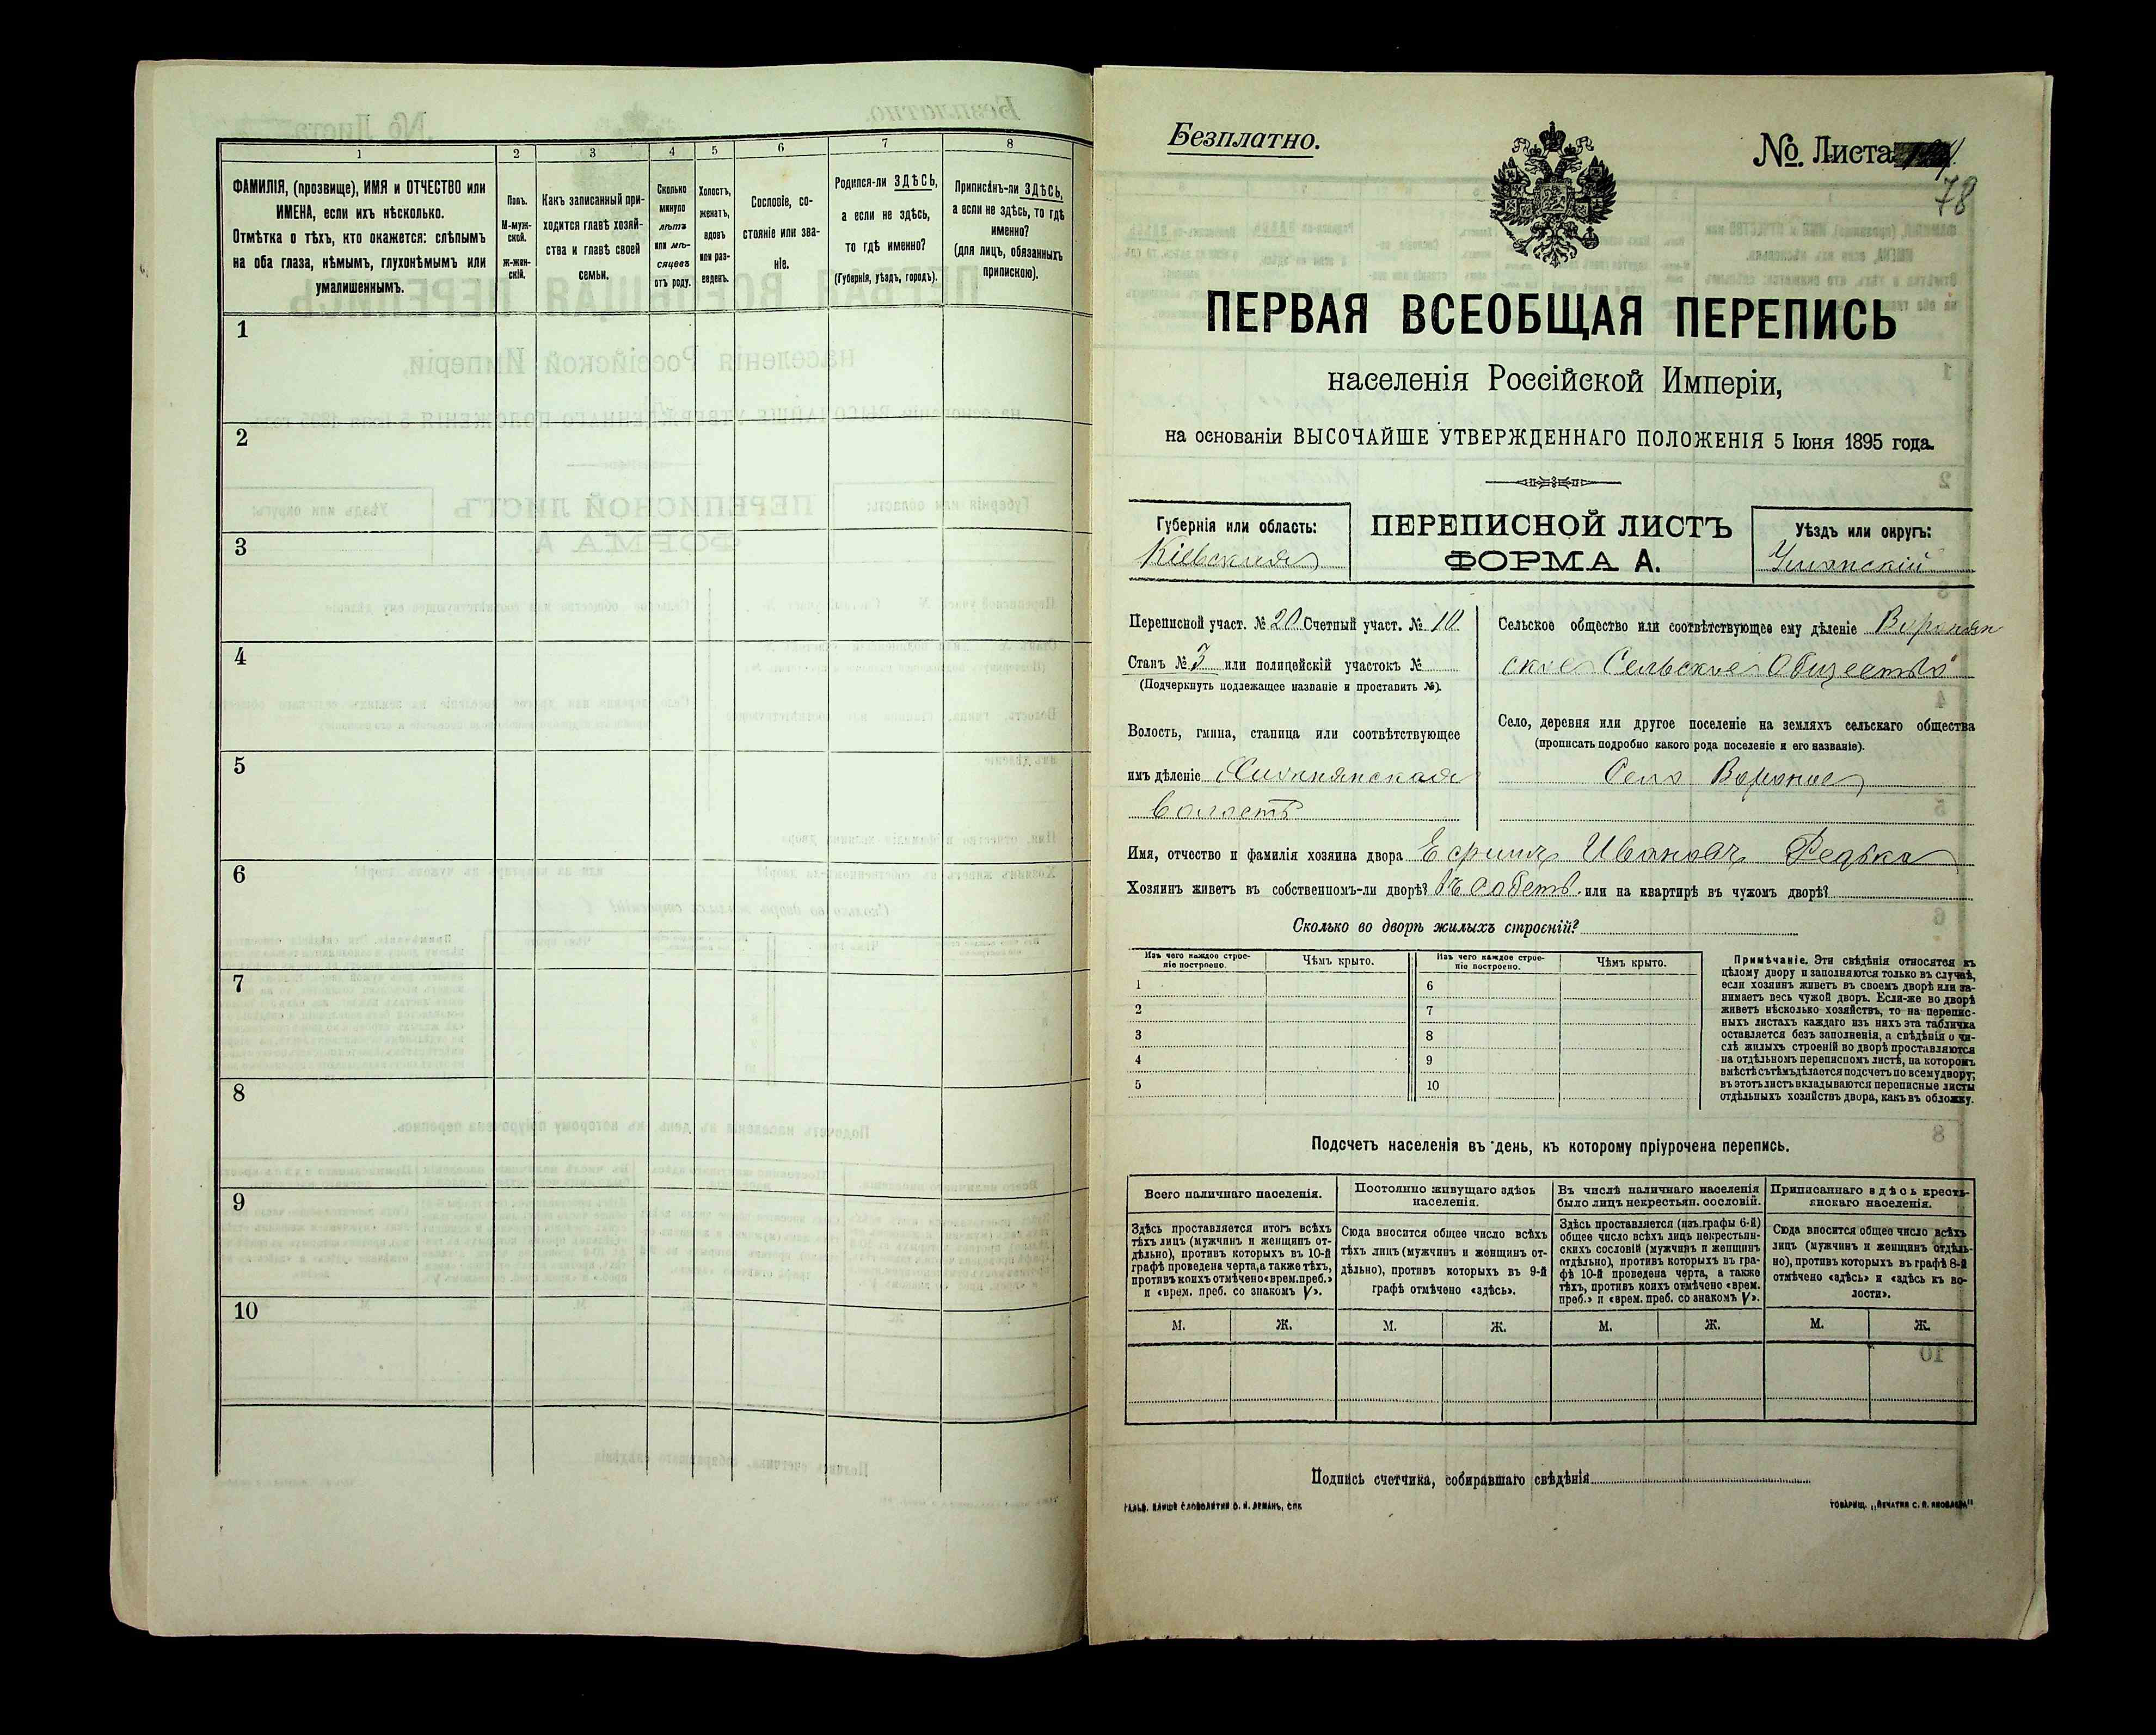 1
2
3
4
5
6
7
8
ФАМИЛІЯ, (прозвище), ИМЯ и ОТЧЕСТВО или
ИМЕНА, если ихъ нѣсколько.
Отмѣтка о тѣхъ, кто окажется: слѣпымъ
на оба глаза, нѣмымъ, глухонѣмымъ или
умалишеннымъ.
Полъ.
М-муж-
ской.
Ж-жен-
скій.
Какъ записанный при-
ходится главѣ хозяй-
ства и главѣ своей
семьи.
Сколько
минуло
лѣтъ
или мѣ-
сяцевъ
отъ роду.
Холостъ,
женатъ,
вдовъ
или раз-
веденъ.
Сословіе, со-
стояніе или зва-
ніе.
Родился-ли ЗДѢСЬ,
а если не здѣсь,
то гдѣ именно?
(Губернія, уѣздъ, городъ).
Приписанъ-ли ЗДѢСЬ,
а если не здѣсь, то гдѣ
именно?
(для лицъ, обязанныхъ
припискою).
1
2
3
4
5
6
7
8
9
10
Безплатно.
№ Листа
78
ПЕРВАЯ ВСЕОБЩАЯ ПЕРЕПИСЬ
населенія Россійской Имперіи,
на основаніи ВЫСОЧАЙШЕ УТВЕРЖДЕННАГО ПОЛОЖЕНІЯ 5 Іюня 1895 года.
Губернія или область:
Кіевская
ПЕРЕПИСНОЙ ЛИСТЪ
ФОРМА А.
Уѣздъ или округъ:
Уманскій
Переписной участ. № 20 Счетный участ. № 10
Станъ № 3 или полицейскій участокъ №
(Подчеркнуть подлежащее названіе и проставить №).
Волость, гмина, станица или соотвѣтствующее
имъ дѣленіе
волость
Сельское общество или соотвѣтствующее ему дѣленіе Воронян
ское Сельское Общество
Село, деревня или другое поселеніе на земляхъ сельскаго общества
(прописать подробно какого рода поселеніе и его названіе).
Село Вороное
Имя, отчество и фамилія хозяина двора Ефимъ Ивановъ Редька
Хозяинъ живетъ въ собственномъ-ли дворѣ? Въ собств. или на квартирѣ въ чужомъ дворѣ?
Сколько во дворѣ жилыхъ строеній?
Изъ чего каждое строе-
ніе построено.
Чѣмъ крыто.
Изъ чего каждое строе-
ніе построено.
Чѣмъ крыто.
1
2
3
4
5
6
7
8
9
10
Примѣчаніе. Эти свѣдѣнія относятся къ
цѣлому двору и заполняются только въ случаѣ,
если хозяинъ живетъ въ своемъ дворѣ или за-
нимаетъ весь чужой дворъ. Если-же во дворѣ
живетъ нѣсколько хозяйствъ, то на перепис-
ныхъ листахъ каждаго изъ нихъ эта табличка
оставляется безъ заполненія, а свѣдѣнія о чи-
слѣ жилыхъ строеній во дворѣ проставляются
на отдѣльномъ переписномъ листѣ, на которомъ
вмѣстѣ съ тѣмъ дѣлается подсчетъ по всему двору;
въ этотъ листъ вкладываются переписные листы
отдѣльныхъ хозяйствъ двора, какъ въ обложку.
Подсчетъ населенія въ день, къ которому пріурочена перепись.
Всего наличнаго населенія.
Здѣсь проставляется итогъ всѣхъ
тѣхъ лицъ (мужчинъ и женщинъ от-
дѣльно), противъ которыхъ въ 10-й
графѣ проведена черта, а также тѣхъ,
противъ коихъ отмѣчено «врем. преб.»
и «врем. преб. со знакомъ V».
Постоянно живущаго здѣсь
населенія.
Сюда вносится общее число всѣхъ
тѣхъ лицъ (мужчинъ и женщинъ от-
дѣльно), противъ которыхъ въ 9-й
графѣ отмѣчено «здѣсь».
Въ числѣ наличнаго населенія
было лицъ некрестьян. сословій.
Здѣсь проставляется (изъ графы 6-й)
общее число всѣхъ лицъ некрестьян-
скихъ сословій (мужчинъ и женщинъ
отдѣльно), противъ которыхъ въ гра-
фѣ 10-й проведена черта, а также
тѣхъ, противъ коихъ отмѣчено «врем.
преб.» и «врем. преб. со знакомъ V».
Приписаннаго здѣсь кресть-
янскаго населенія.
Сюда вносится общее число всѣхъ
лицъ (мужчинъ и женщинъ отдѣль-
но), противъ которыхъ въ графѣ 8-й
отмѣчено «здѣсь» и «здѣсь къ во-
лости».
М.
Ж.
М.
Ж.
М.
Ж.
М.
Ж.
Подпись счетчика, собиравшаго свѣдѣнія
ГАЛЬВ. КЛИШЕ СЛОВОЛИТНИ О. И. ЛЕМАНЪ, СПБ.
ТОВАРИЩ. „ПЕЧАТНЯ С. П. ЯКОВЛЕВА“